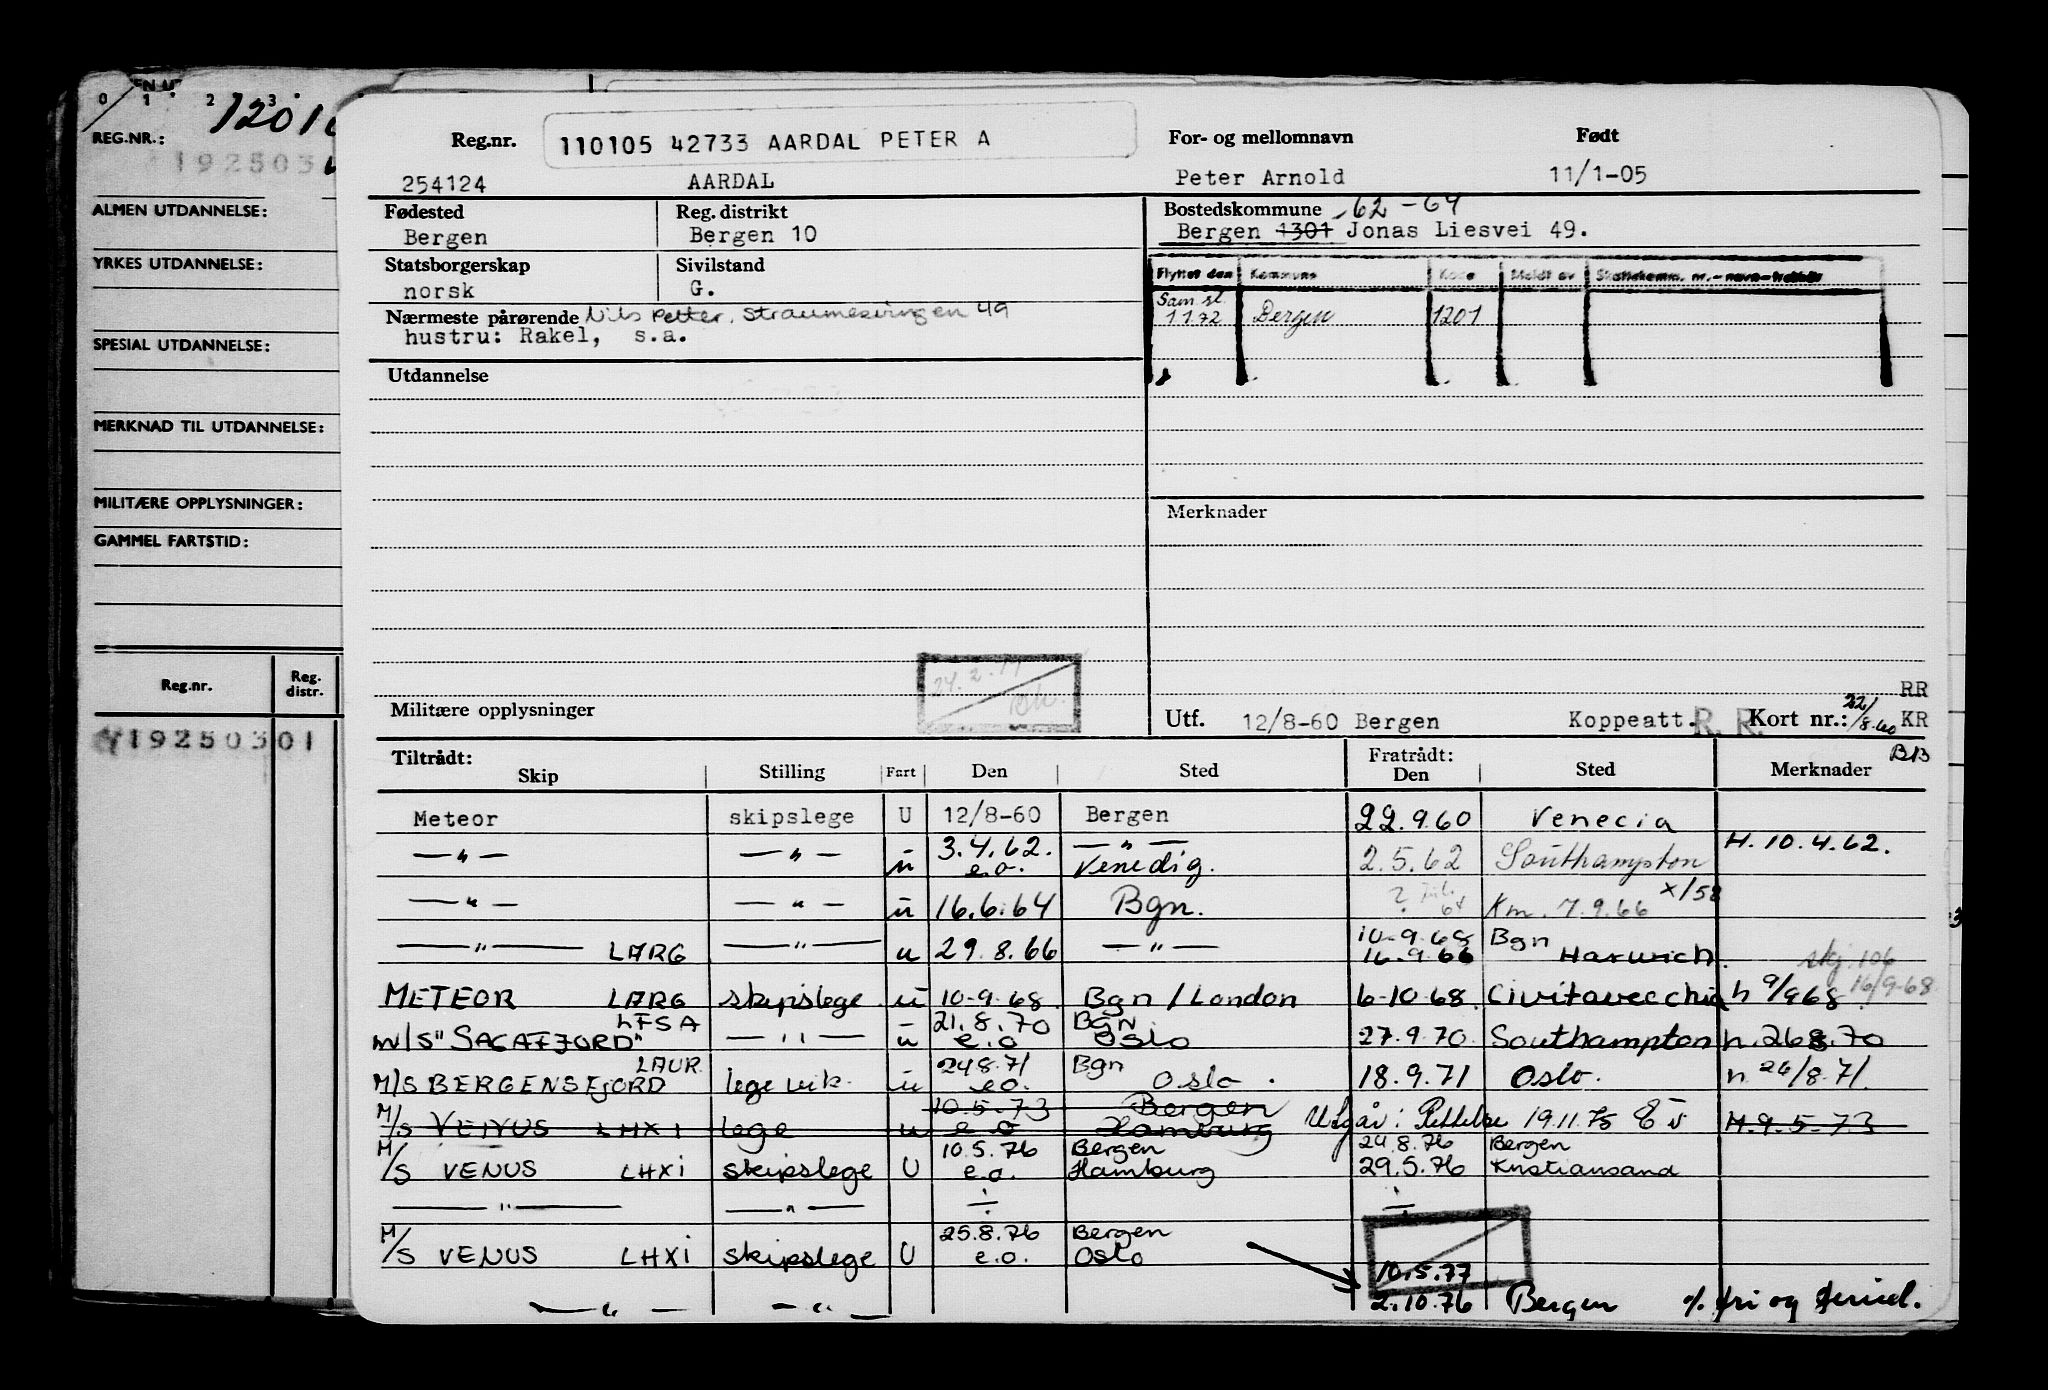 0 1 2 3
REG.NR.:
1925030
ALMEN UTDANNELSE:
YRKES UTDANNELSE:
SPESIAL UTDANNELSE:
MERKNAD TIL UTDANNELSE:
MILITÆRE OPPLYSNINGER:
GAMMEL FARTSTID:
Reg.nr. Reg. distr.
19250301
Reg.nr. 110105 42733 AARDAL PETER A For- og mellomnavn Født
254124 AARDAL Peter Arnold 11/1-05
Fødested Reg. distrikt Bostedskommune 62-64
Bergen Bergen 10 Bergen 1301 Jonas Liesvei 49.
Statsborgerskap Sivilstand Flyttet den Kommune Kode Meldt av
norsk G. Sam.sl. 1172 Bergen 1201
Nærmeste pårørende Nils Petter, Straumesvingen 49
hustru: Rakel, s.a.
Utdannelse
Merknader
24.2.77
RR
Militære opplysninger Utf. 12/8-60 Bergen Koppeatt. R. R. Kort nr.: 22/8.60 KR
Tiltrådt: Fratrådt: B13
Skip Stilling Fart Den Sted Den Sted Merknader
Meteor skipslege U 12/8-60 Bergen 22.9.60 Venecia
—"— —"— u 3.4.62. —"— H. 10.4.62.
e.o. Venedig. 2.5.62 Southampton
—"— —"— u 16.6.64 Bgn. ? 64 Km. 7.9.66 x/58
—"— LARG —"— u 29.8.66 —"— 10-9.68 Bgn
16.9.66 Harwich.
skj. 106 16/9-68
METEOR LARG skipslege u 10-9.68 Bgn / London 6-10-68. Civitavecchia h 9/968
LFSA 21.8.70 Bgn
M/S "SAGAFJORD" —"— u e.o Oslo 27.9.70. Southampton h. 268.70
LAUR. 248.71 Bgn
M/S BERGENSFJORD lege vik. u e.o. Oslo. 18.9.71 Oslo. h 24/8.71.
10.5.73 Bergen Utgår i Rettelse 19.11.75
M/S VENUS LHXI lege u e o Hamburg H.9.5.73
10.5.76 Bergen 24.8.76 Bergen
M/S VENUS LHXI skipslege U e.o. Hamburg 29.5.76 Kristiansand
—"— —"— ÷ ÷
25.8.76 Bergen
M/S VENUS LHXI skipslege U e.o. Oslo
10.5.77
—"— —"— 2.10.76 Bergen o/ fri og feried.